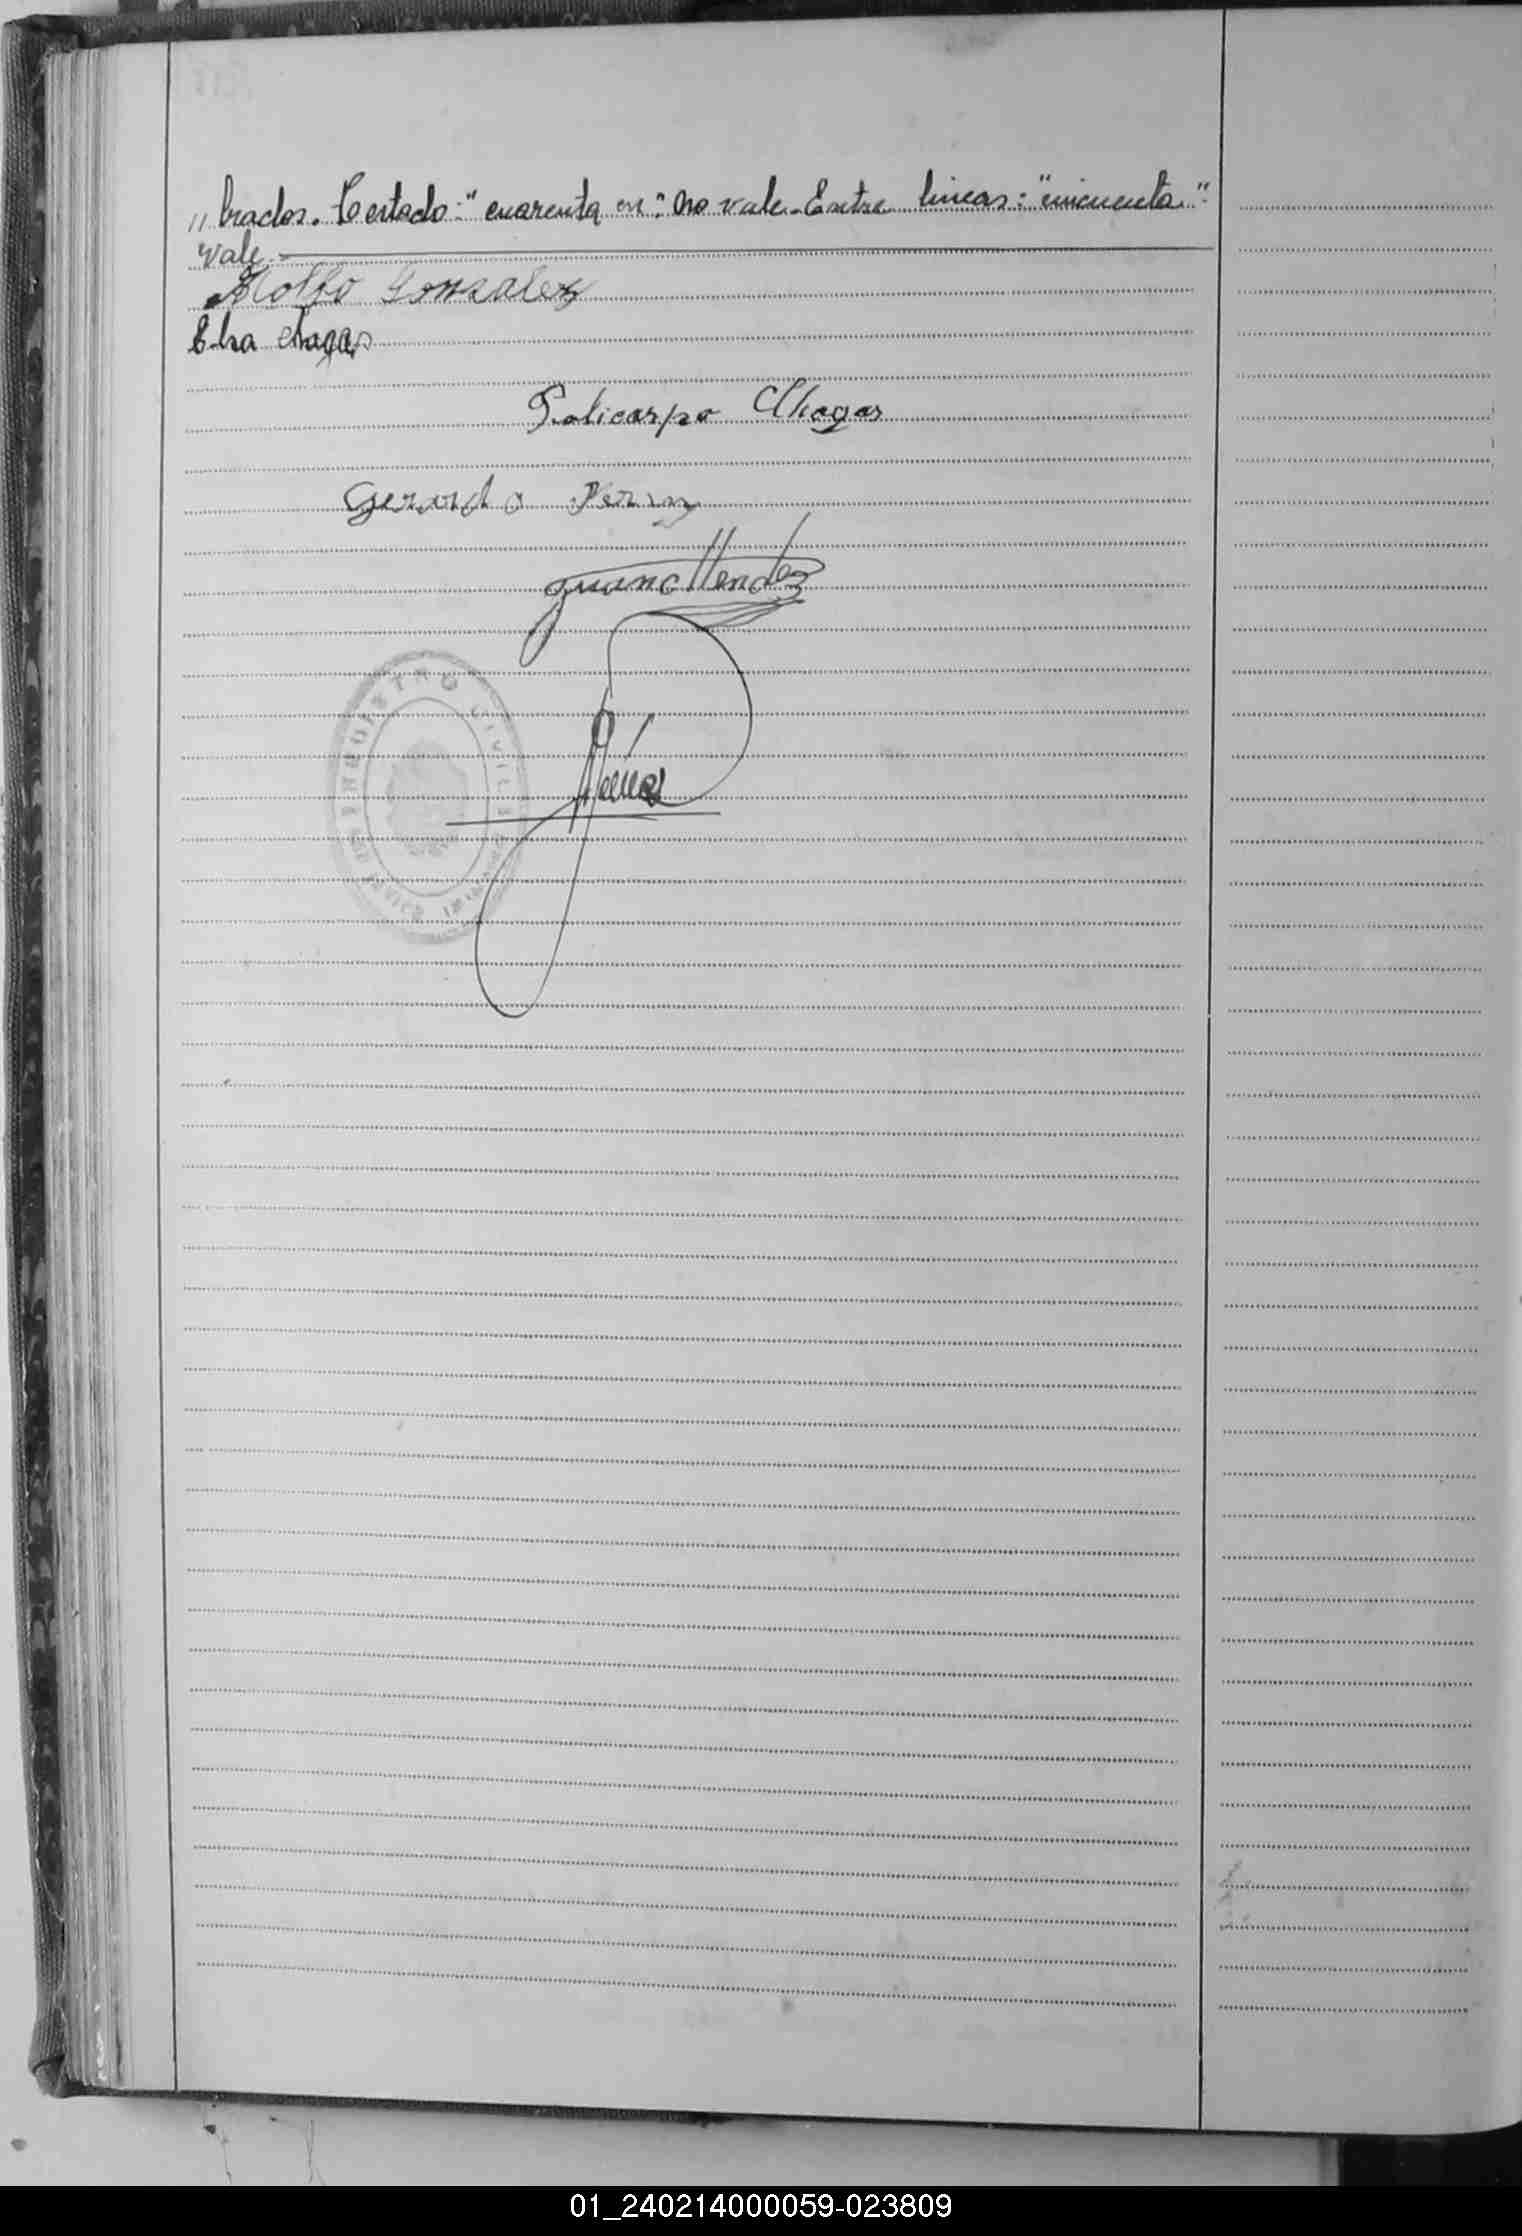 „brados. Testado: "cuarenta en": No vale. Entre lineas: "cincuenta".
Vale.
Adolfo Gonzalez
Elsa Chagas
Policarpo Chagas
Gerardo
Juan C Mendez
REGISTRO CIVIL
01_240214000059-023809